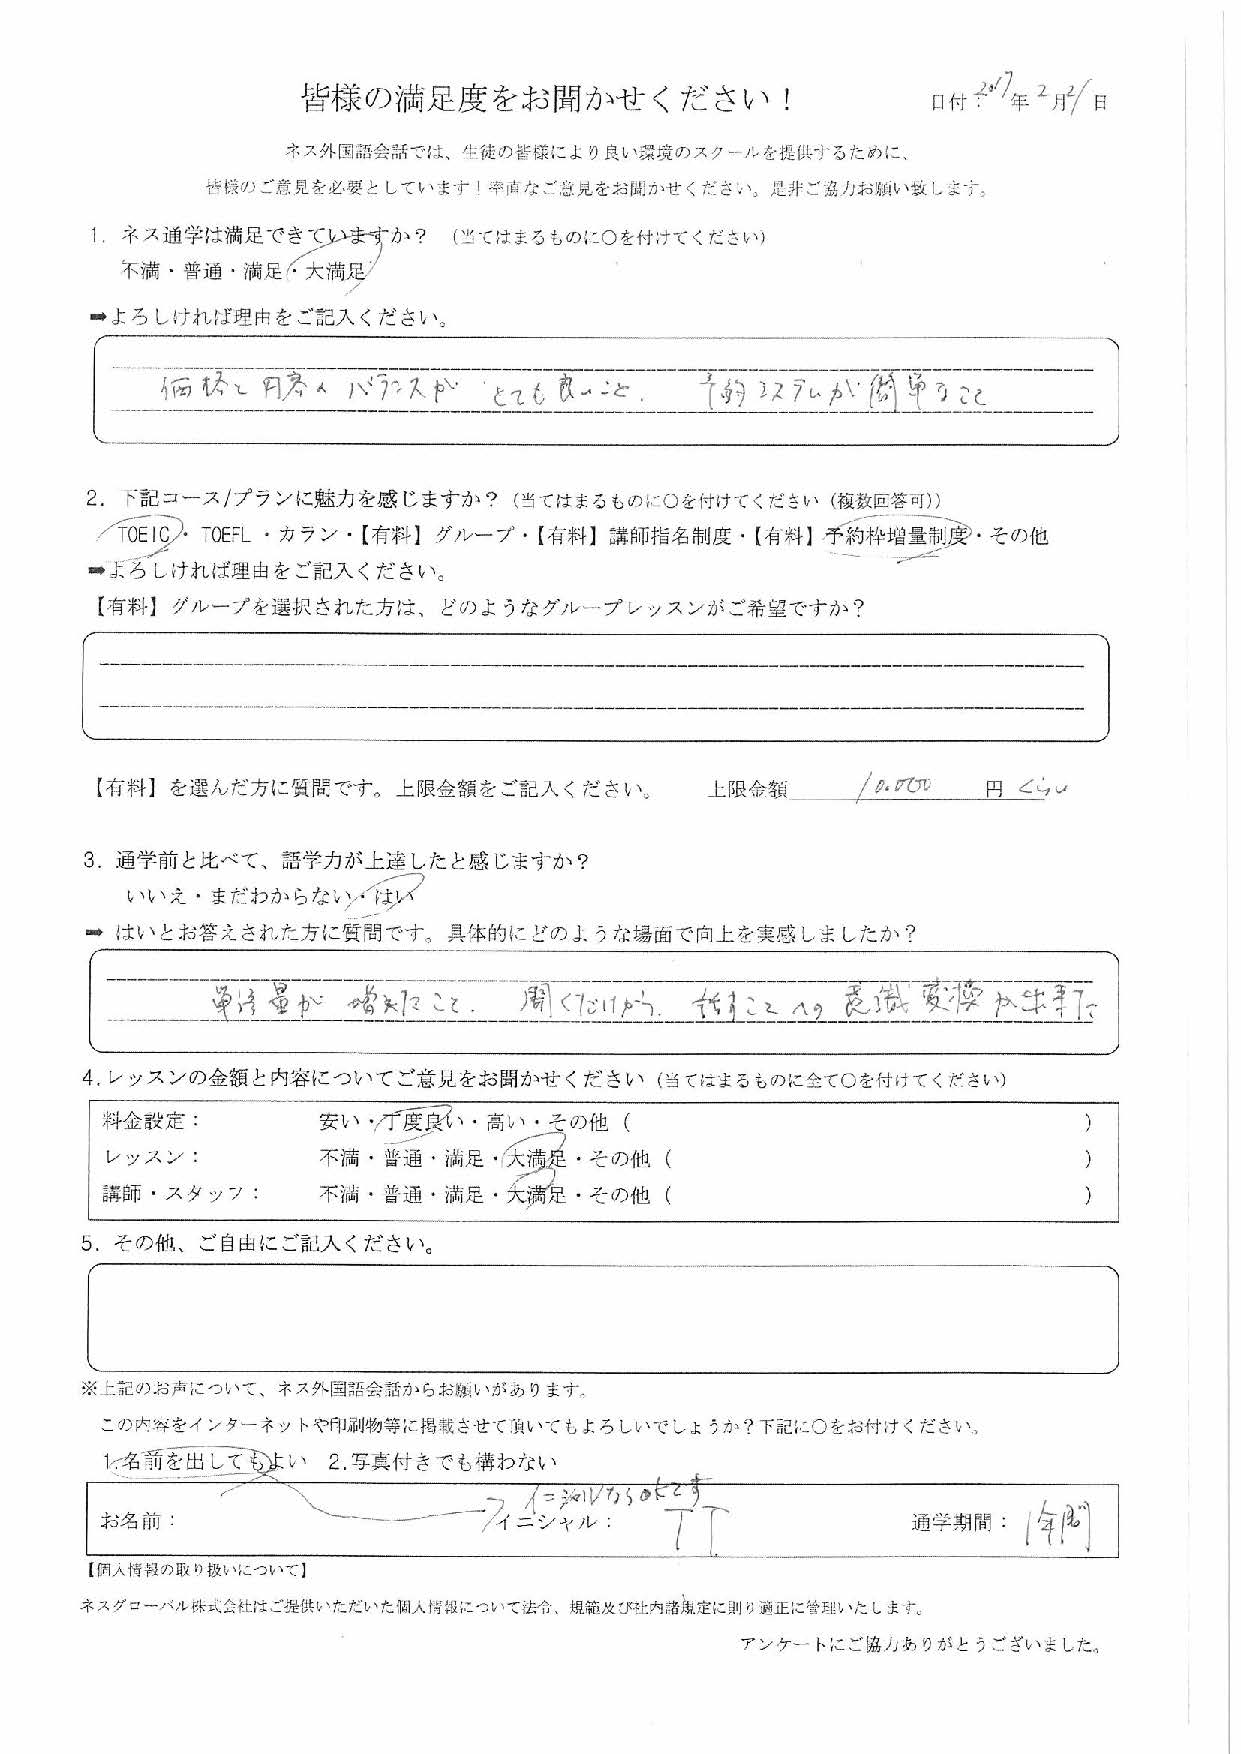 皆様の満足度をお聞かせください！
日付：2017年2月21日
ネス外国語会話では、生徒の皆様により良い環境のスクールを提供するために、
皆様のご意見を必要としています！率直なご意見をお聞かせください。是非ご協力お願い致します。
1. ネス通学は満足できていますか？（当てはまるものに○を付けてください）
不満・普通・満足・大満足
➡よろしければ理由をご記入ください。
価格と内容のバランスが とても良いこと. 予約システムが簡単なこと
2. 下記コース/プランに魅力を感じますか？（当てはまるものに○を付けてください（複数回答可））
TOEIC・TOEFL・カラン・【有料】グループ・【有料】講師指名制度・【有料】予約枠増量制度・その他
➡よろしければ理由をご記入ください。
【有料】グループを選択された方は、どのようなグループレッスンがご希望ですか？
【有料】を選んだ方に質問です。上限金額をご記入ください。 上限金額 10.000 円 くらい
3. 通学前と比べて、語学力が上達したと感じますか？
いいえ・まだわからない・はい
➡ はいとお答えされた方に質問です。具体的にどのような場面で向上を実感しましたか？
単語量が 増えたこと. 聞くだけから. 話すことへの 意識変換が出来た
4.レッスンの金額と内容についてご意見をお聞かせください（当てはまるものに全て○を付けてください）
料金設定： 安い・丁度良い・高い・その他（ ）
レッスン： 不満・普通・満足・大満足・その他（ ）
講師・スタッフ： 不満・普通・満足・大満足・その他（ ）
5. その他、ご自由にご記入ください。
※上記のお声について、ネス外国語会話からお願いがあります。
この内容をインターネットや印刷物等に掲載させて頂いてもよろしいでしょうか？下記に○をお付けください。
1.名前を出してもよい 2.写真付きでも構わない
イニシャルならOKです
お名前： イニシャル： TT 通学期間： 1年間
【個人情報の取り扱いについて】
ネスグローバル株式会社はご提供いただいた個人情報について法令、規範及び社内諸規定に則り適正に管理いたします。
アンケートにご協力ありがとうございました。